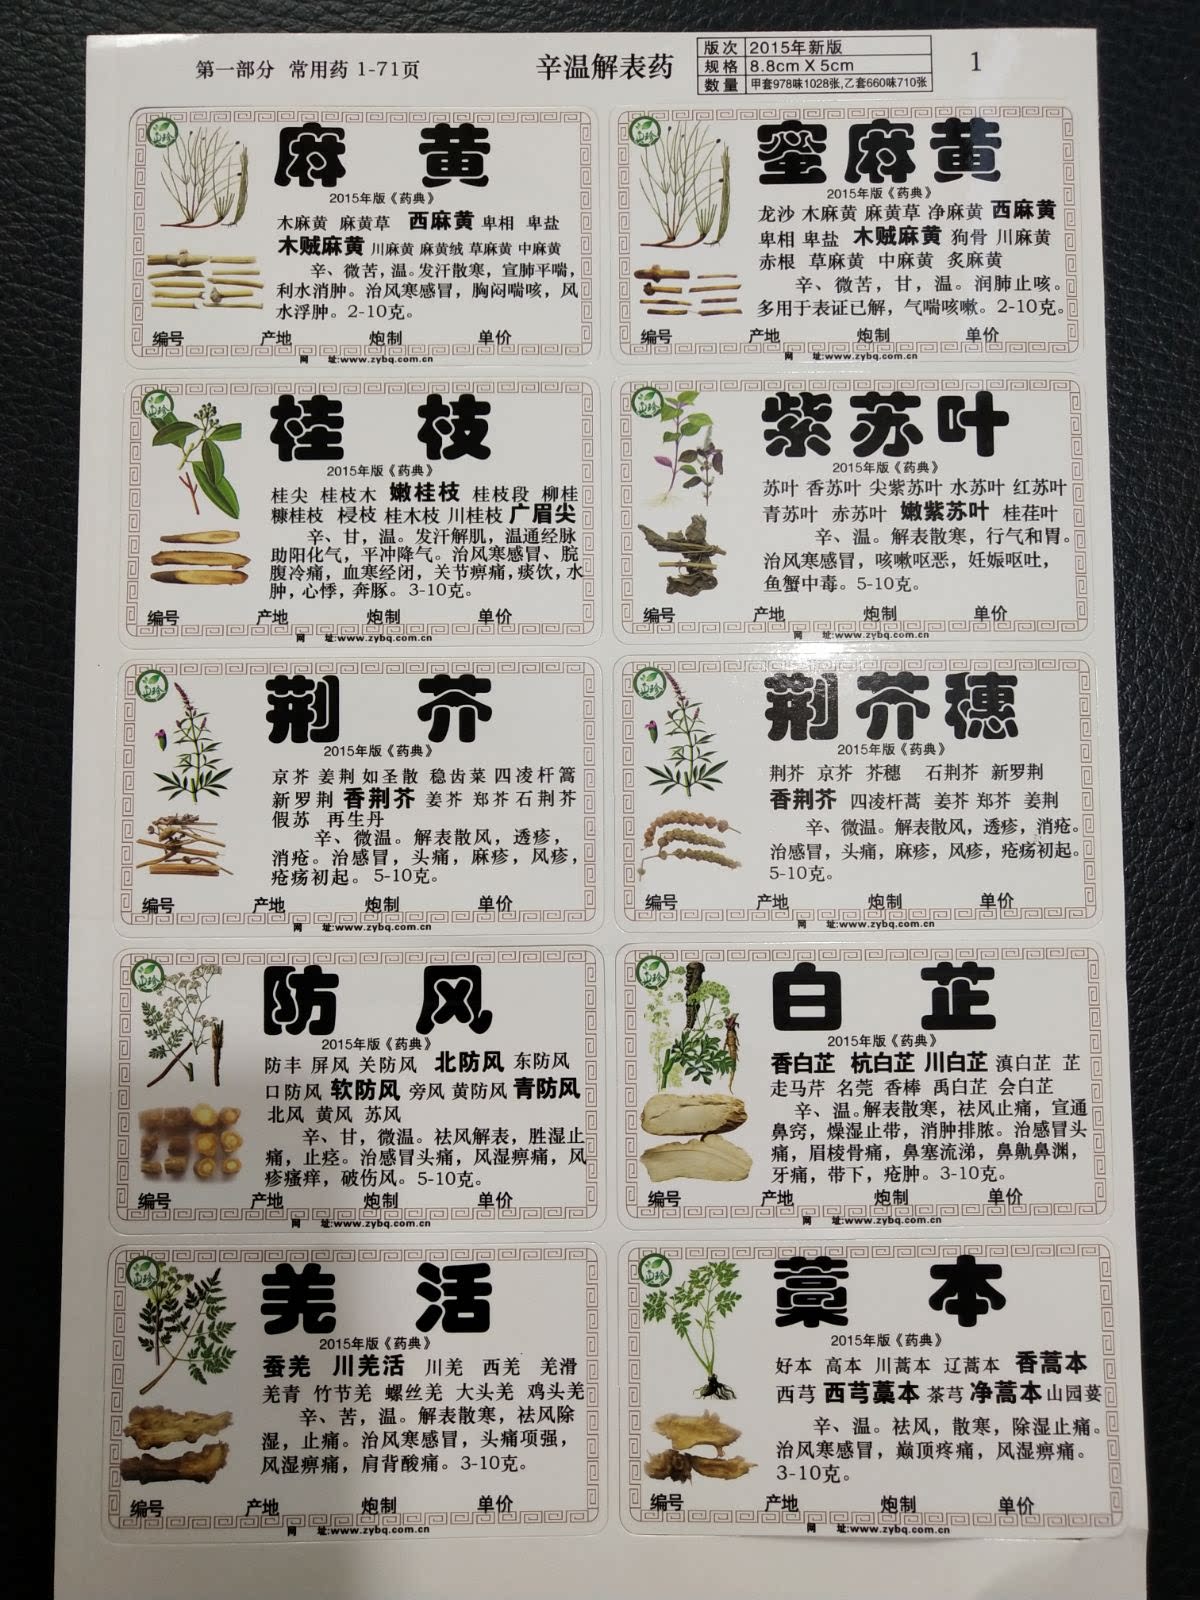 第一部分 常用药 1-71页
辛温解表药
版次 2015年新版
规格 8.8cm X 5cm
数量 甲套978味1028张,乙套660味710张
1
麻黄
2015年版《药典》
木麻黄 麻黄草 西麻黄 卑相 卑盐
木贼麻黄 川麻黄 麻黄绒 草麻黄 中麻黄
辛、微苦，温。发汗散寒，宣肺平喘，
利水消肿。治风寒感冒，胸闷喘咳，风
水浮肿。2-10克。
编号 产地 炮制 单价
网 址:www.zybq.com.cn
蜜麻黄
2015年版《药典》
龙沙 木麻黄 麻黄草 净麻黄 西麻黄
卑相 卑盐 木贼麻黄 狗骨 川麻黄
赤根 草麻黄 中麻黄 炙麻黄
辛、微苦，甘，温。润肺止咳。
多用于表证已解，气喘咳嗽。2-10克。
编号 产地 炮制 单价
网 址:www.zybq.com.cn
桂枝
2015年版《药典》
桂尖 桂枝木 嫩桂枝 桂枝段 柳桂
糠桂枝 桵枝 桂木枝 川桂枝 广眉尖
辛、甘，温。发汗解肌，温通经脉
助阳化气，平冲降气。治风寒感冒、脘
腹冷痛，血寒经闭，关节痹痛，痰饮，水
肿，心悸，奔豚。3-10克。
编号 产地 炮制 单价
网 址:www.zybq.com.cn
紫苏叶
2015年版《药典》
苏叶 香苏叶 尖紫苏叶 水苏叶 红苏叶
青苏叶 赤苏叶 嫩紫苏叶 桂荏叶
辛、温。解表散寒，行气和胃。
治风寒感冒，咳嗽呕恶，妊娠呕吐，
鱼蟹中毒。5-10克。
编号 产地 炮制 单价
网 址:www.zybq.com.cn
荆芥
2015年版《药典》
京芥 姜荆 如圣散 稳齿菜 四凌杆篙
新罗荆 香荆芥 姜芥 郑芥 石荆芥
假苏 再生丹
辛、微温。解表散风，透疹，
消疮。治感冒，头痛，麻疹，风疹，
疮疡初起。5-10克。
编号 产地 炮制 单价
网 址:www.zybq.com.cn
荆芥穗
2015年版《药典》
荆芥 京芥 芥穗 石荆芥 新罗荆
香荆芥 四凌杆蒿 姜芥 郑芥 姜荆
辛、微温。解表散风，透疹，消疮。
治感冒，头痛，麻疹，风疹，疮疡初起。
5-10克。
编号 产地 炮制 单价
网 址:www.zybq.com.cn
防风
2015年版《药典》
防丰 屏风 关防风 北防风 东防风
口防风 软防风 旁风 黄防风 青防风
北风 黄风 苏风
辛、甘，微温。祛风解表，胜湿止
痛，止痉。治感冒头痛，风湿痹痛，风
疹瘙痒，破伤风。5-10克。
编号 产地 炮制 单价
网 址:www.zybq.com.cn
白芷
2015年版《药典》
香白芷 杭白芷 川白芷 滇白芷 芷
走马芹 名莞 香棒 禹白芷 会白芷
辛、温。解表散寒，祛风止痛，宣通
鼻窍，燥湿止带，消肿排脓。治感冒头
痛，眉棱骨痛，鼻塞流涕，鼻鼽鼻渊，
牙痛，带下，疮肿。3-10克。
编号 产地 炮制 单价
网 址:www.zybq.com.cn
羌活
2015年版《药典》
蚕羌 川羌活 川羌 西羌 羌滑
羌青 竹节羌 螺丝羌 大头羌 鸡头羌
辛、苦，温。解表散寒，祛风除
湿，止痛。治风寒感冒，头痛项强，
风湿痹痛，肩背酸痛。3-10克。
编号 产地 炮制 单价
网 址:www.zybq.com.cn
藁本
2015年版《药典》
好本 高本 川蒿本 辽蒿本 香蒿本
西芎 西芎藁本 茶芎 净蒿本 山园荽
辛、温。祛风，散寒，除湿止痛。
治风寒感冒，巅顶疼痛，风湿痹痛。
3-10克。
编号 产地 炮制 单价
网 址:www.zybq.com.cn